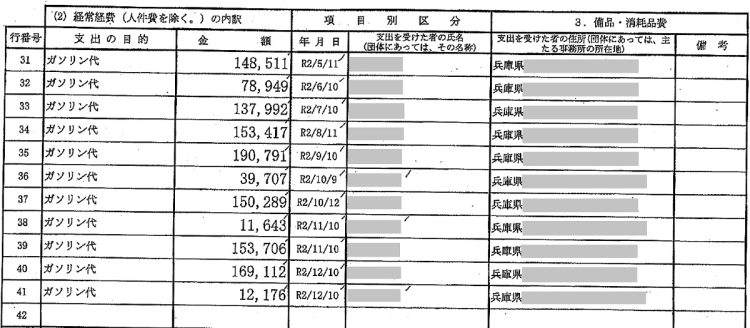 (2) 経常経費(人件費を除く。)の内訳 項目別区分 3. 備品・消耗品費
行番号 支出の目的 金額 年月日 支出を受けた者の氏名(団体にあっては、その名称) 支出を受けた者の住所(団体にあっては、主たる事務所の所在地) 備考
31 ガソリン代 148,511 R2/5/11 兵庫県
32 ガソリン代 78,949 R2/6/10 兵庫県
33 ガソリン代 137,992 R2/7/10 兵庫県
34 ガソリン代 153,417 R2/8/11 兵庫県
35 ガソリン代 190,791 R2/9/10 兵庫県
36 ガソリン代 39,707 R2/10/9 兵庫県
37 ガソリン代 150,289 R2/10/12 兵庫県
38 ガソリン代 11,643 R2/11/10 兵庫県
39 ガソリン代 153,706 R2/11/10 兵庫県
40 ガソリン代 169,112 R2/12/10 兵庫県
41 ガソリン代 12,176 R2/12/10 兵庫県
42